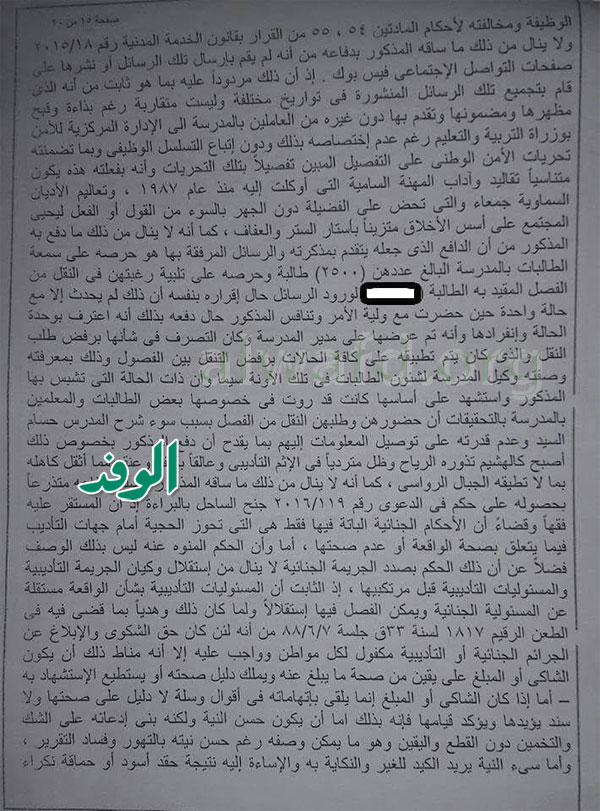 صفحة ١٥ من ٢٠
الوظيفة ومخالفته لأحكام المادتين ٥٤ ، ٥٥ من القرار بقانون الخدمة المدنية رقم ٢٠١٥/١٨
ولا ينال من ذلك ما ساقه المذكور بدفاعه من أنه لم يقم بإرسال تلك الرسائل أو نشرها على
صفحات التواصل الإجتماعى فيس بوك . إذ أن ذلك مردوداً عليه بما هو ثابت من أنه الذى
قام بتجميع تلك الرسائل المنشورة فى تواريخ مختلفة وليست متقاربة رغم بذاءة وقبح
مظهرها ومضمونها وتقدم بها دون غيره من العاملين بالمدرسة الى الإدارة المركزية للأمن
بوزراة التربية والتعليم رغم عدم إختصاصه بذلك ودون إتباع التسلسل الوظيفى وبما تضمنته
تحريات الأمن الوطنى على التفصيل المبين تفصيلاً بتلك التحريات وأنه بفعلته هذه يكون
متناسياً تقاليد وآداب المهنة السامية التى أوكلت إليه منذ عام ١٩٨٧ ، وتعاليم الأديان
السماوية جمعاء والتى تحض على الفضيلة دون الجهر بالسوء من القول أو الفعل ليحيى
المجتمع على أسس الأخلاق متزيناً بأستار الستر والعفاف ، كما أنه لا ينال من ذلك ما دفع به
المذكور من أن الدافع الذى جعله يتقدم بمذكرته والرسائل المرفقة بها هو حرصه على سمعة
الطالبات بالمدرسة البالغ عددهن (٢٥٠٠) طالبة وحرصه على تلبية رغبتهن فى النقل من
الفصل المقيد به الطالبة لورود الرسائل حال إقراره بنفسه أن ذلك لم يحدث إلا مع
حالة واحدة حين حضرت مع ولية الأمر وتنافس المذكور حال دفعه بذلك أنه اعترف بوحدة
الحالة وإنفرادها وأنه تم عرضها على مدير المدرسة وكان التصرف فى شأنها برفض طلب
النقل والذى كان يتم تطبيقه على كافة الحالات برفض التنقل بين الفصول وذلك بمعرفته
وصفته وكيل المدرسة لشئون الطالبات فى تلك الآونة سيما وأن ذات الحالة التى تشبس بها
المذكور واستشهد على أساسها كانت قد روت فى خصوصها بعض الطالبات والمعلمين
بالمدرسة بالتحقيقات أن حضورهن وطلبهن النقل من الفصل بسبب سوء شرح المدرس حسام
السيد وعدم قدرته على توصيل المعلومات إليهم بما يقدح أن دفع المذكور بخصوص ذلك
أصبح كالهشيم تذوره الرياح وظل متردياً فى الإثم التأديبى وعالقاً أثقل كاهله
بما لا تطيقه الجبال الرواسى ، كما أنه لا ينال من ذلك ما ساقه متذرعاً
بحصوله على حكم فى الدعوى رقم ٢٠١٦/١١٩ جنح الساحل بالبراءة إذ أن المستقر عليه
فقهاً وقضاءً أن الأحكام الجنائية الباتة فيها فقط هى التى تحوز الحجية أمام جهات التأديب
فيما يتعلق بصحة الواقعة أو عدم صحتها ، أما وأن الحكم المنوه عنه ليس بذلك الوصف
فضلاً عن أن ذلك الحكم بصدد الجريمة الجنائية لا ينال من إستقلال وكيان الجريمة التأديبية
والمسئوليات التأديبية قبل مرتكبيها ، إذ الثابت أن المسئوليات التأديبية بشأن الواقعة مستقلة
عن المسئولية الجنائية ويمكن الفصل فيها إستقلالاً ولما كان ذلك وهدياً بما قضى فيه فى
الطعن الرقيم ١٨١٧ لسنة ٣٣ق جلسة ٨٨/٦/٧ من أنه لئن كان حق الشكوى والإبلاغ عن
الجرائم الجنائية أو التأديبية مكفول لكل مواطن وواجب عليه إلا أنه مناط ذلك أن يكون
الشاكى أو المبلغ على يقين من صحة ما يبلغ عنه ويملك دليل صحته أو يستطيع الإستشهاد به
– أما إذا كان الشاكى أو المبلغ إنما يلقى بإتهاماته فى أقوال وسلة لا دليل على صحتها ولا
سند يؤيدها ويؤكد قيامها فإنه بذلك اما أن يكون حسن النية ولكنه بنى إدعائه على الشك
والتخمين دون القطع واليقين وهو ما يمكن وصفه رغم حسن نيته بالتهور وفساد التقرير ،
وأما سىء النية يريد الكيد للغير والنكاية به والإساءة إليه نتيجة حقد أسود أو حماقة نكراء
الوفد
alwafd.org